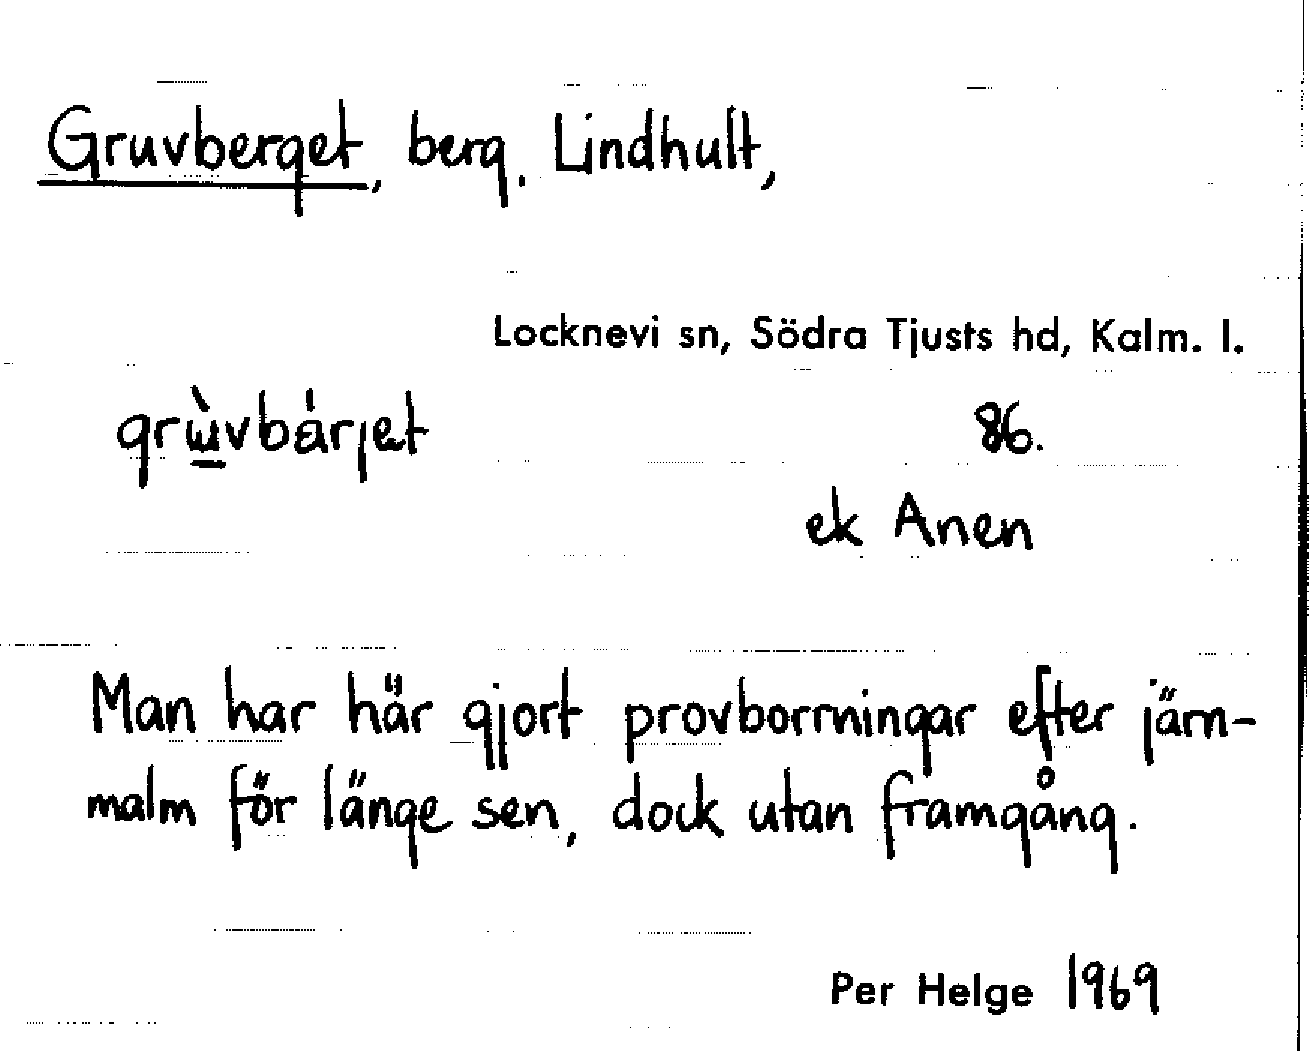 Gruvberget, berg. Lindhult,
Locknevi sn, Södra Tjusts hd, Kalm. l.
grɯ̀vbárjet 86.
ek Anen
Man har här gjort provborrningar efter järn-
malm för länge sen, dock utan framgång.
Per Helge 1969